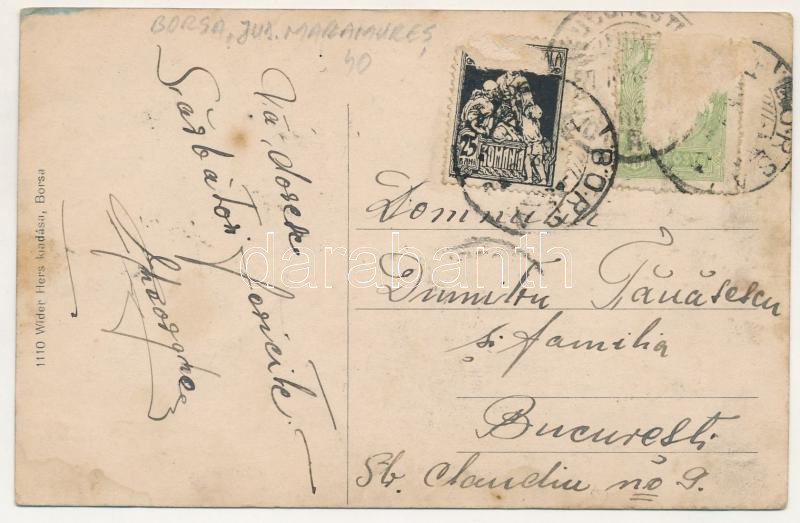 BORSA, JUD. MARAMUREȘ
40
Vă doresc
Sărbători fericite.
Gheorghe
1110 Wider Hers kiadása, Borsa
25 BANI
ROMANIA
BUCUREȘTI
BORȘA
Domnului
Dumitru Tănăsescu
și familia
București
Str. Claudiu no 9.
darabanth